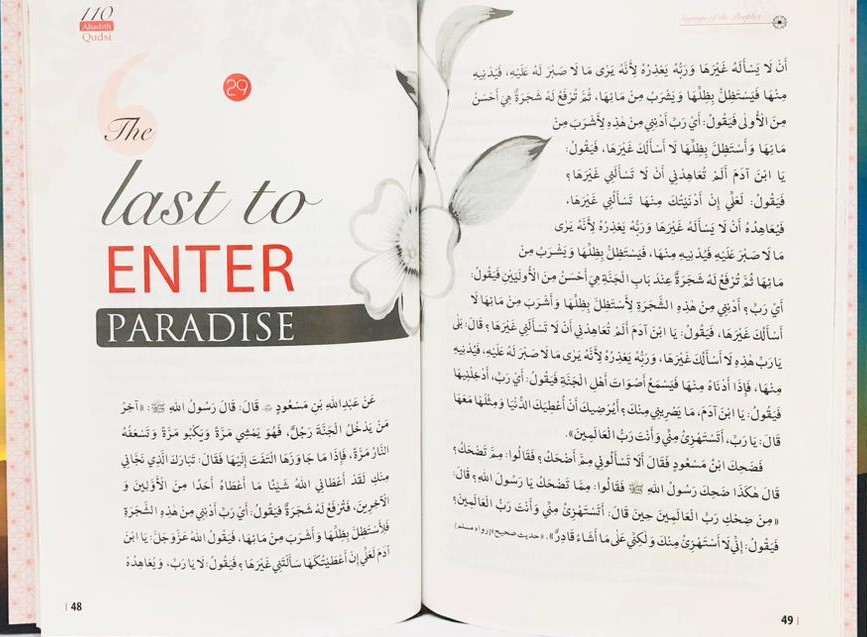 110
Ahadith
Qudsi
29
The
last to
ENTER
PARADISE
عَنْ عَبْدِاللهِ بْنِ مَسْعُودٍ ؓ قَالَ: قَالَ رَسُولُ اللهِ ﷺ: «آخِرُ
مَنْ يَدْخُلُ الْجَنَّةَ رَجُلٌ، فَهُوَ يَمْشِي مَرَّةً وَيَكْبُو مَرَّةً وَتَسْفَعُهُ
النَّارُ مَرَّةً، فَإِذَا مَا جَاوَزَهَا الْتَفَتَ إِلَيْهَا فَقَالَ: تَبَارَكَ الَّذِي نَجَّانِي
مِنْكِ لَقَدْ أَعْطَانِي اللهُ شَيْئًا مَا أَعْطَاهُ أَحَدًا مِنَ الْأَوَّلِينَ وَ
الْآخِرِينَ، فَتُرْفَعُ لَهُ شَجَرَةٌ فَيَقُولُ: أَيْ رَبِّ أَدْنِنِي مِنْ هَذِهِ الشَّجَرَةِ
فَلِأَسْتَظِلَّ بِظِلِّهَا وَأَشْرَبَ مِنْ مَائِهَا، فَيَقُولُ اللهُ عَزَّ وَجَلَّ: يَا ابْنَ
آدَمَ لَعَلِّي إِنْ أَعْطَيْتُكَهَا سَأَلْتَنِي غَيْرَهَا؟ فَيَقُولُ: لَا يَا رَبِّ، وَيُعَاهِدُهُ
48
Sayings of the Prophet
أَنْ لَا يَسْأَلَهُ غَيْرَهَا وَرَبُّهُ يَعْذِرُهُ لِأَنَّهُ يَرَى مَا لَا صَبْرَ لَهُ عَلَيْهِ، فَيُدْنِيهِ
مِنْهَا فَيَسْتَظِلُّ بِظِلِّهَا وَيَشْرَبُ مِنْ مَائِهَا، ثُمَّ تُرْفَعُ لَهُ شَجَرَةٌ هِيَ أَحْسَنُ
مِنَ الْأُولَى فَيَقُولُ: أَيْ رَبِّ أَدْنِنِي مِنْ هَذِهِ لِأَشْرَبَ مِنْ
مَائِهَا وَأَسْتَظِلَّ بِظِلِّهَا لَا أَسْأَلُكَ غَيْرَهَا، فَيَقُولُ:
يَا ابْنَ آدَمَ أَلَمْ تُعَاهِدْنِي أَنْ لَا تَسْأَلَنِي غَيْرَهَا؟
فَيَقُولُ: لَعَلِّي إِنْ أَدْنَيْتُكَ مِنْهَا تَسْأَلُنِي غَيْرَهَا،
فَيُعَاهِدُهُ أَنْ لَا يَسْأَلَهُ غَيْرَهَا وَرَبُّهُ يَعْذِرُهُ لِأَنَّهُ يَرَى
مَا لَا صَبْرَ عَلَيْهِ فَيُدْنِيهِ مِنْهَا، فَيَسْتَظِلُّ بِظِلِّهَا وَيَشْرَبُ مِنْ
مَائِهَا ثُمَّ تُرْفَعُ لَهُ شَجَرَةٌ عِنْدَ بَابِ الْجَنَّةِ هِيَ أَحْسَنُ مِنَ الْأُولَيَيْنِ فَيَقُولُ:
أَيْ رَبِّ؟ أَدْنِنِي مِنْ هَذِهِ الشَّجَرَةِ لِأَسْتَظِلَّ بِظِلِّهَا وَأَشْرَبَ مِنْ مَائِهَا لَا
أَسْأَلُكَ غَيْرَهَا، فَيَقُولُ: يَا ابْنَ آدَمَ أَلَمْ تُعَاهِدْنِي أَنْ لَا تَسْأَلَنِي غَيْرَهَا؟ قَالَ: بَلَى
يَا رَبِّ هَذِهِ لَا أَسْأَلُكَ غَيْرَهَا، وَرَبُّهُ يَعْذِرُهُ لِأَنَّهُ يَرَى مَا لَا صَبْرَ لَهُ عَلَيْهِ، فَيُدْنِيهِ
مِنْهَا، فَإِذَا أَدْنَاهُ مِنْهَا فَيَسْمَعُ أَصْوَاتَ أَهْلِ الْجَنَّةِ فَيَقُولُ: أَيْ رَبِّ، أَدْخِلْنِيهَا
فَيَقُولُ: يَا ابْنَ آدَمَ، مَا يَصْرِينِي مِنْكَ؟ أَيُرْضِيكَ أَنْ أُعْطِيَكَ الدُّنْيَا وَمِثْلَهَا مَعَهَا
قَالَ: يَا رَبِّ، أَتَسْتَهْزِئُ مِنِّي وَأَنْتَ رَبُّ الْعَالَمِينَ».
فَضَحِكَ ابْنُ مَسْعُودٍ فَقَالَ أَلَا تَسْأَلُونِي مِمَّ أَضْحَكُ؟ فَقَالُوا: مِمَّ تَضْحَكُ؟
قَالَ هَكَذَا ضَحِكَ رَسُولُ اللهِ ﷺ فَقَالُوا: مِمَّا تَضْحَكُ يَا رَسُولَ اللهِ؟ قَالَ:
«مِنْ ضِحْكِ رَبِّ الْعَالَمِينَ حِينَ قَالَ: أَتَسْتَهْزِئُ مِنِّي وَأَنْتَ رَبُّ الْعَالَمِينَ؟
فَيَقُولُ: إِنِّي لَا أَسْتَهْزِئُ مِنْكَ وَلَكِنِّي عَلَى مَا أَشَاءُ قَادِرٌ». «حديث صحيح» (رواه مسلم)
49